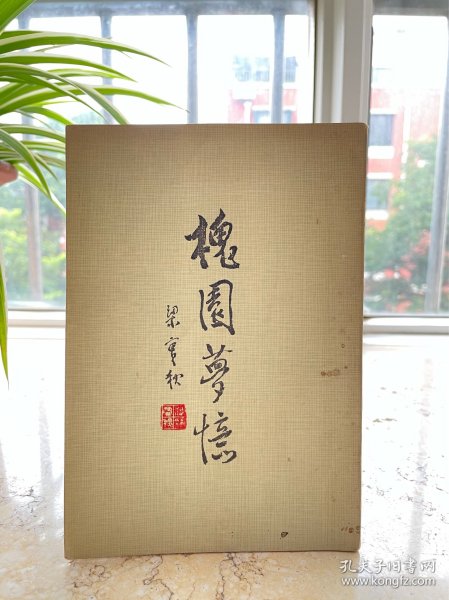 槐園夢憶
梁實秋
孔夫子旧书网
www.kongfz.com